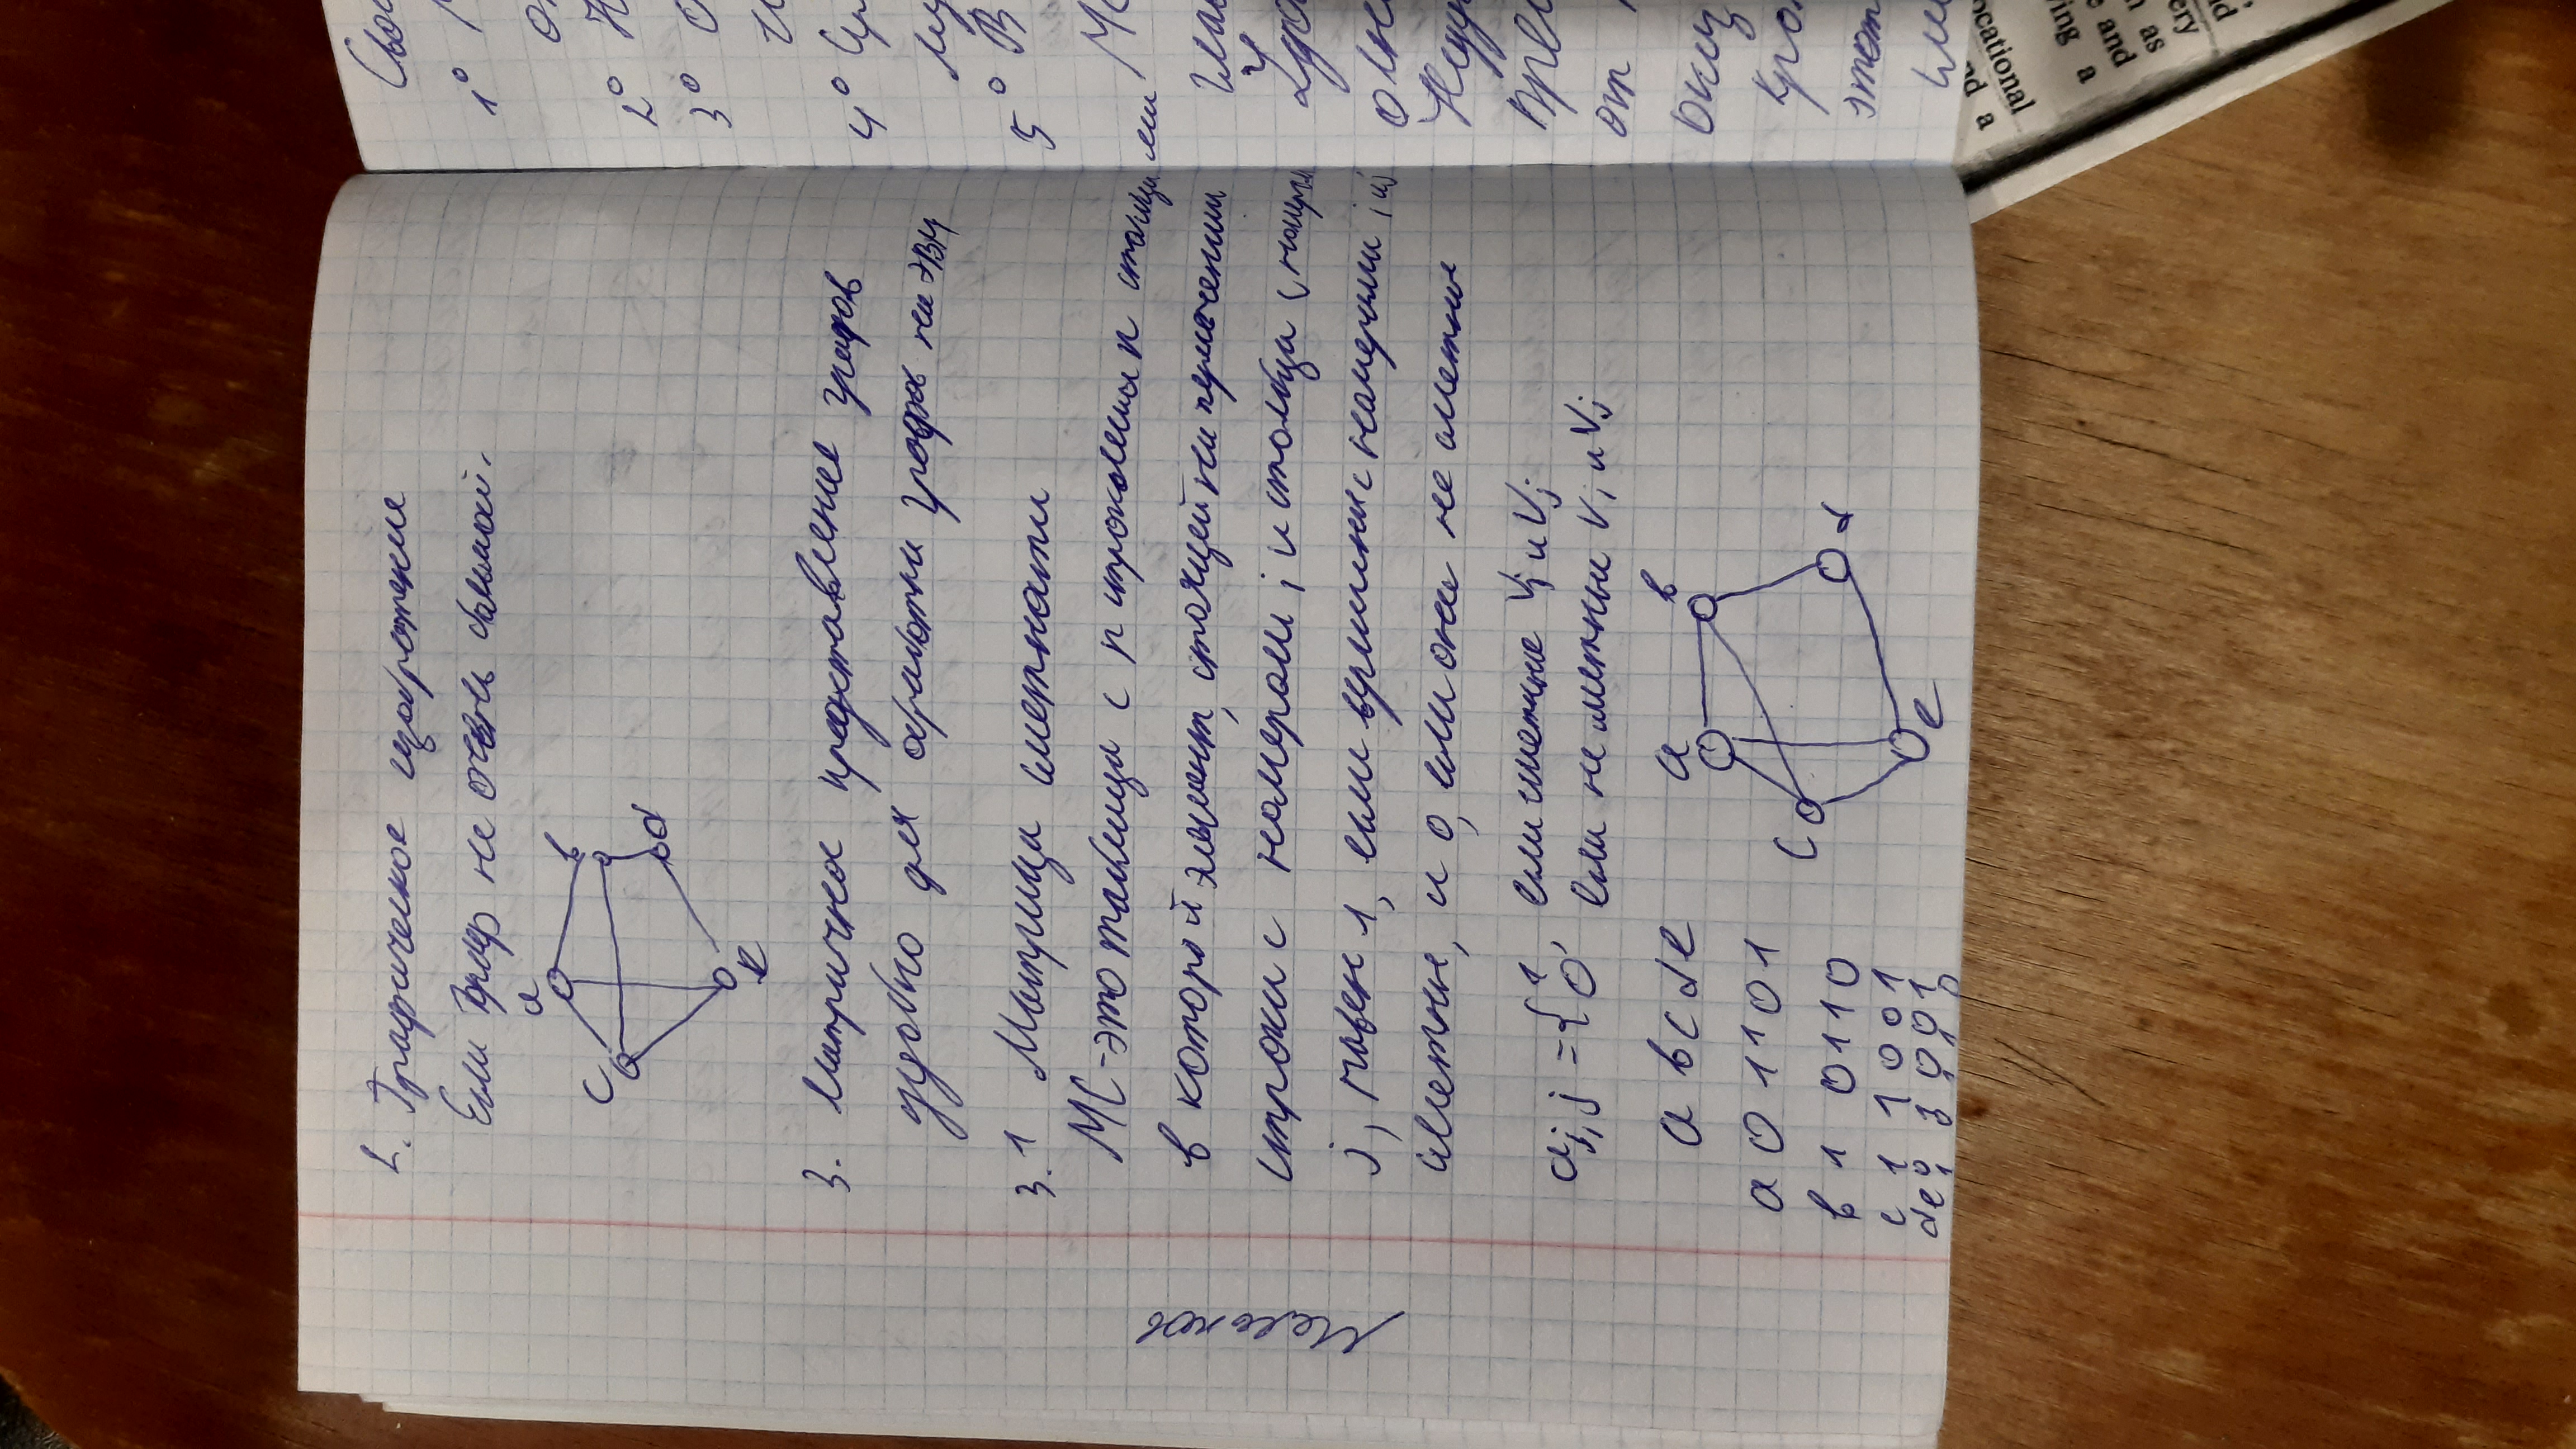 2. Графическое изображение
Если Граф не очень большой.
a
b
c
d
e
3. Матрична представление графов
удобно для обработки графов на ЭВМ
3.1 Матрица смежности
МС-это таблица с n строками и n столбцами
в которой элемент, стоящей на пересечении
строки с номером i и столбца с номером
j, равен 1, если вершины с номерами i и j
смежны, и 0, если они не смежны
ai,j = { 1, если смежные Vi и Vj
0, если не смежны Vi и Vj
a b c d e
a 0 1 1 0 1
b 1 0 1 1 0
c 1 1 0 0 1
d e 0 0 0 1
1 1 0
a
b
c
d
e
Мельнов
Сво
1°
2° Н
3° О
4°
5° В
МС
от
этот
ocational
nd a
ing a
and
as